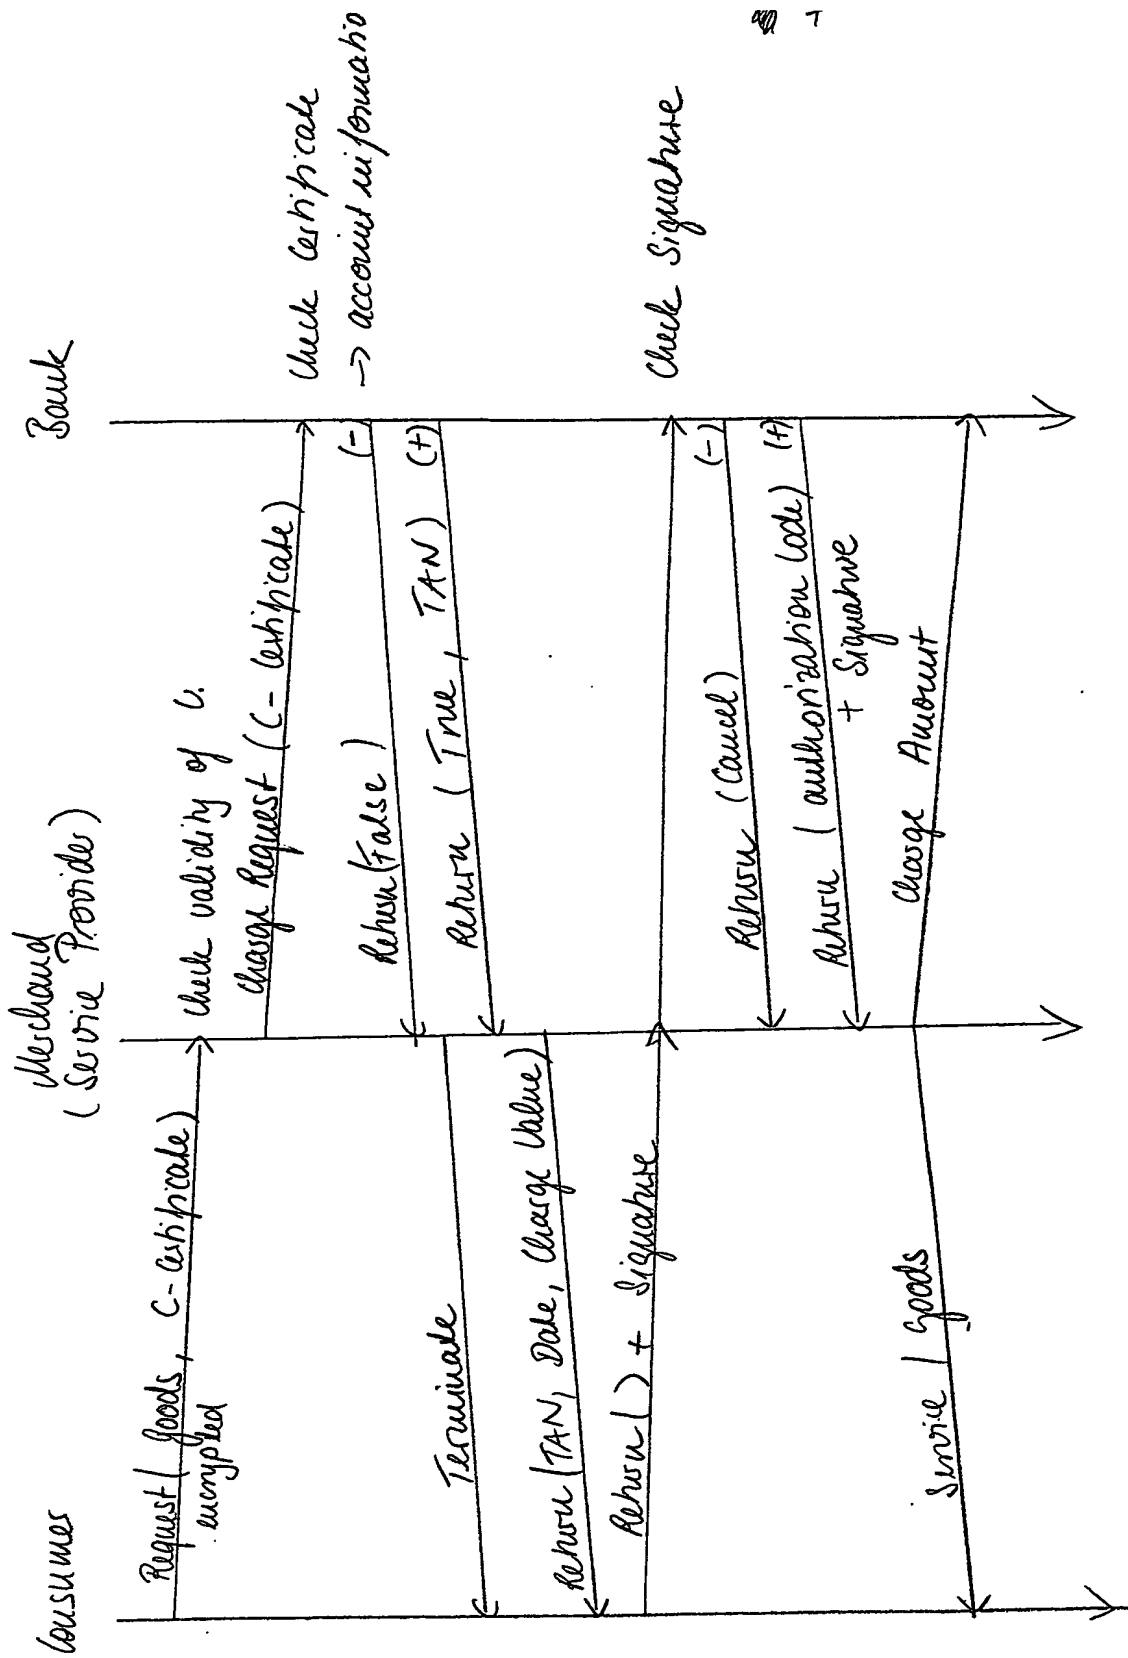 Consumer
Merchand
(Service Provider)
Bank
Request ( goods, C-Certificate)
encrypted
check validity of C.
charge Request (C-Certificate)
check Certificate
→ account informatio
(-)
Return (False)
(+)
Return (True, TAN)
Terminate
Return (TAN, Date, Charge Value)
Return ( ) + Signature
check Signature
(-)
Return (Cancel)
(+)
Return (authorization Code)
+ Signature
Charge Amount
Service / goods